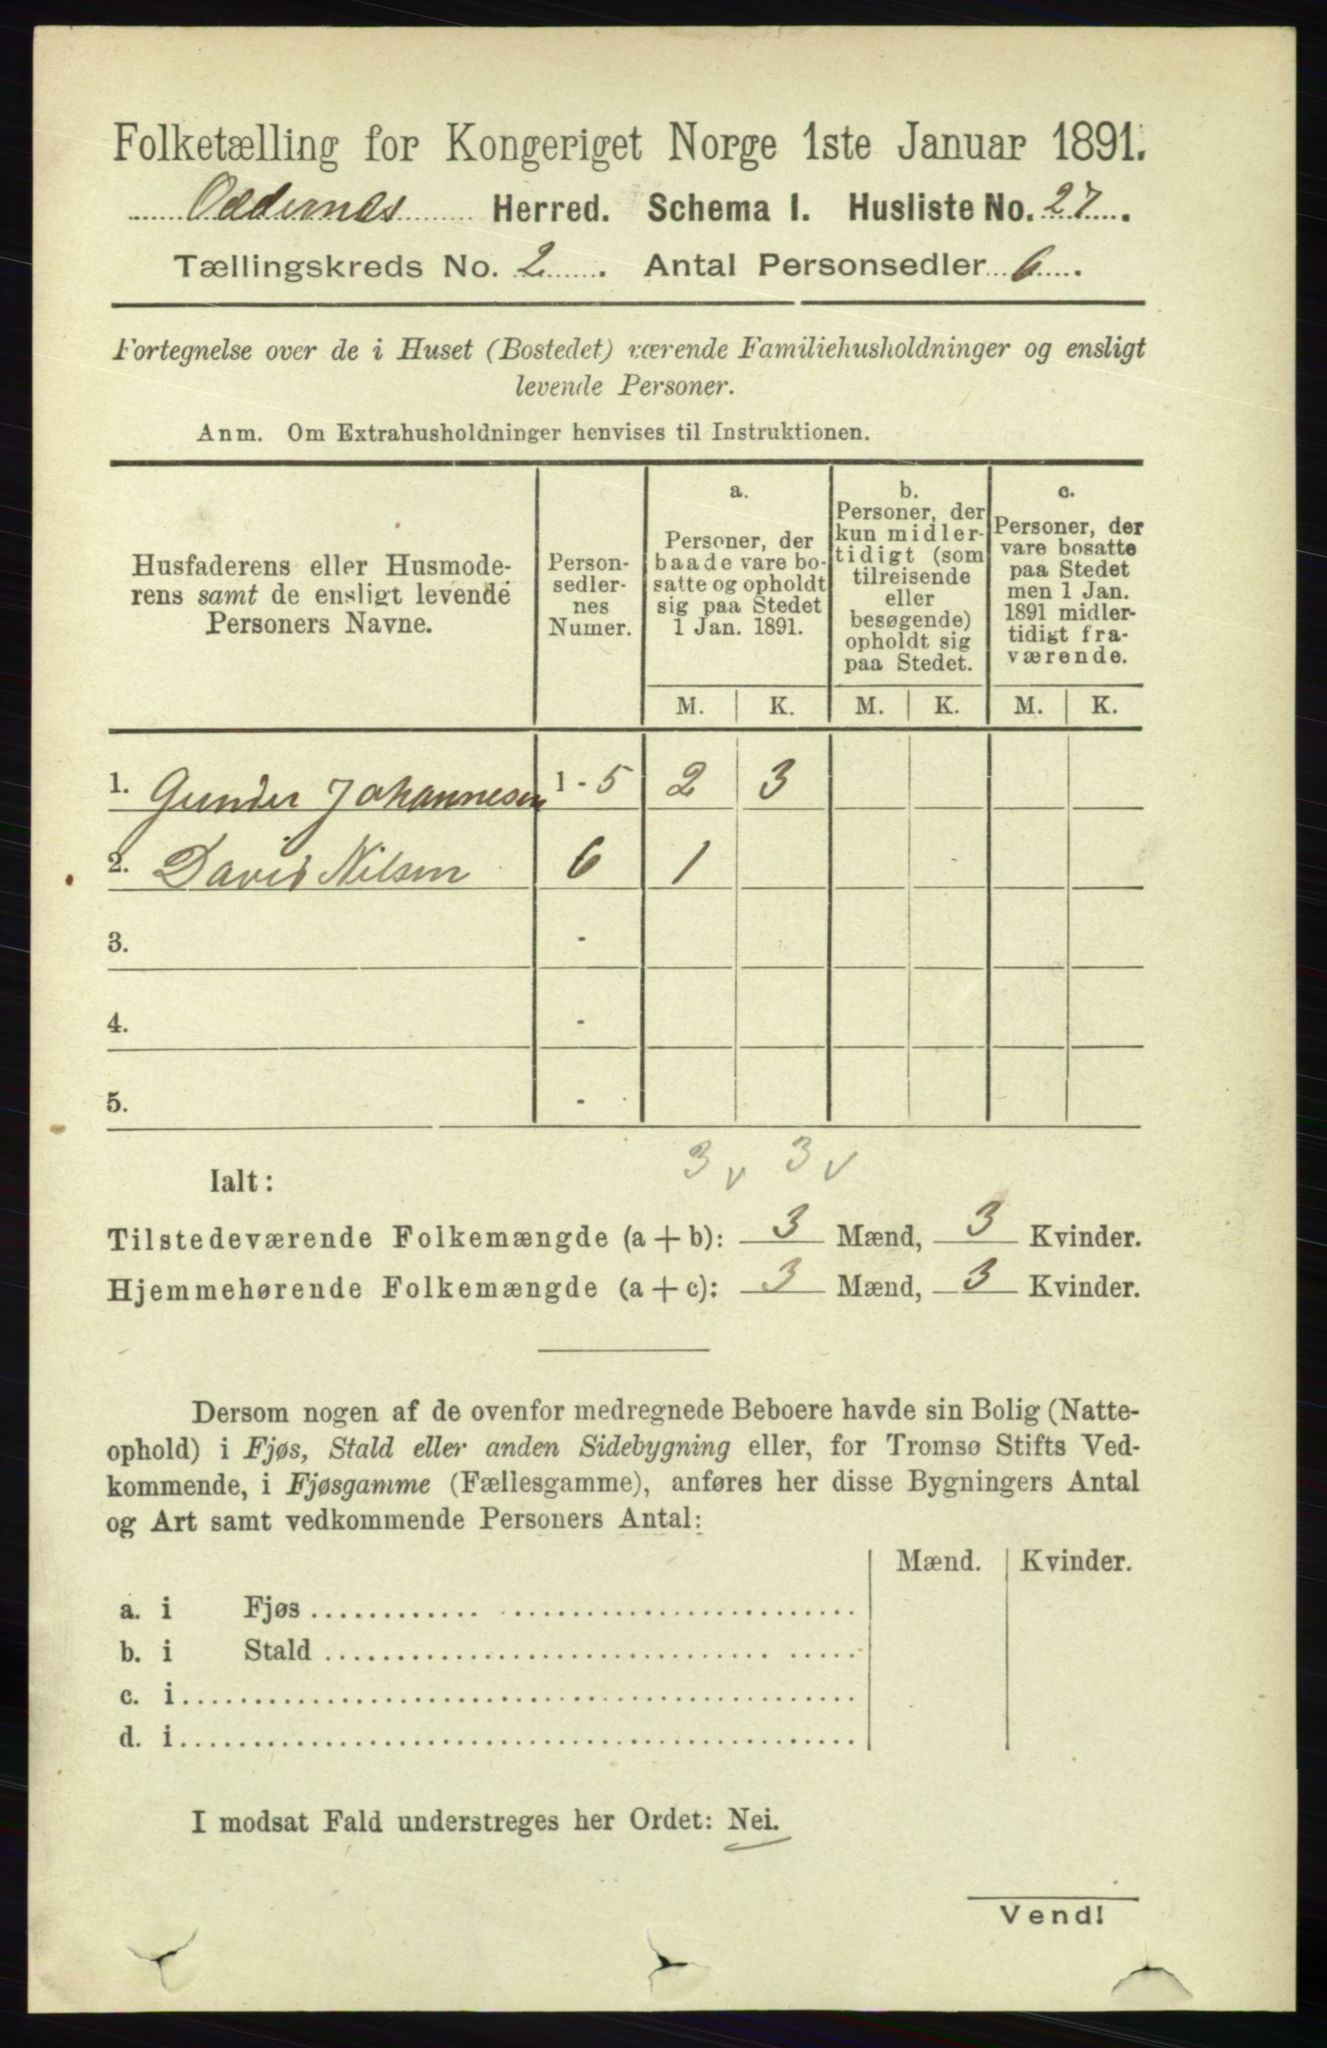 Folketælling for Kongeriget Norge 1ste Januar 1891.
Oddernes Herred. Schema I. Husliste No. 27.
Tællingskreds No. 2. Antal Personsedler 6.
Fortegnelse over de i Huset (Bostedet) værende Familiehusholdninger og ensligt
levende Personer.
Anm. Om Extrahusholdninger henvises til Instruktionen.
Husfaderens eller Husmode-
rens samt de ensligt levende
Personers Navne.
Person-
sedler-
nes
Numer.
a.
Personer, der
baade vare bo-
satte og opholdt
sig paa Stedet
1 Jan. 1891.
b.
Personer, der
kun midler-
tidigt (som
tilreisende
eller
besøgende)
opholdt sig
paa Stedet.
c.
Personer, der
vare bosatte
paa Stedet
men 1 Jan.
1891 midler-
tidigt fra-
værende.
M. K. M. K. M. K.
1. Gunder Johannesen 1 - 5 2 3
2. David Nilsen 6 1
3. -
4. -
5. -
3 v 3 v
Ialt:
Tilstedeværende Folkemængde (a + b): 3 Mænd, 3 Kvinder.
Hjemmehørende Folkemængde (a + c): 3 Mænd, 3 Kvinder.
Dersom nogen af de ovenfor medregnede Beboere havde sin Bolig (Natte-
ophold) i Fjøs, Stald eller anden Sidebygning eller, for Tromsø Stifts Ved-
kommende, i Fjøsgamme (Fællesgamme), anføres her disse Bygningers Antal
og Art samt vedkommende Personers Antal:
Mænd. Kvinder.
a. i Fjøs
b. i Stald
c. i
d. i
I modsat Fald understreges her Ordet: Nei.
Vend!